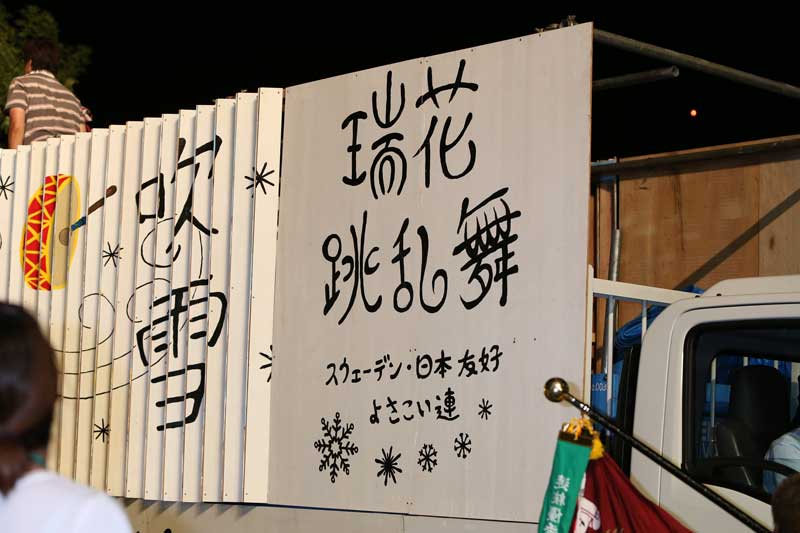 吹雪
瑞花
跳乱舞
スウェーデン・日本友好
よさこい連